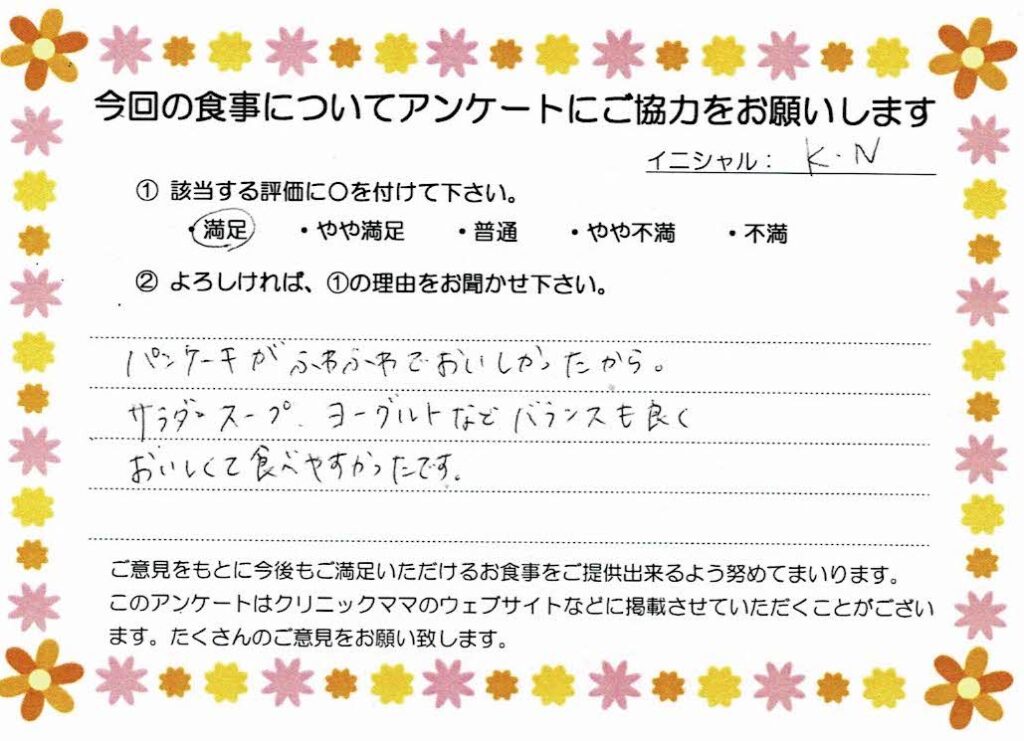 今回の食事についてアンケートにご協力をお願いします
イニシャル： K・N
① 該当する評価に〇を付けて下さい。
・満足 ・やや満足 ・普通 ・やや不満 ・不満
② よろしければ、①の理由をお聞かせ下さい。
パンケーキがふわふわでおいしかったから。
サラダ・スープ、ヨーグルトなどバランスも良く
おいしくて食べやすかったです。
ご意見をもとに今後もご満足いただけるお食事をご提供出来るよう努めてまいります。
このアンケートはクリニックママのウェブサイトなどに掲載させていただくことがござい
ます。たくさんのご意見をお願い致します。